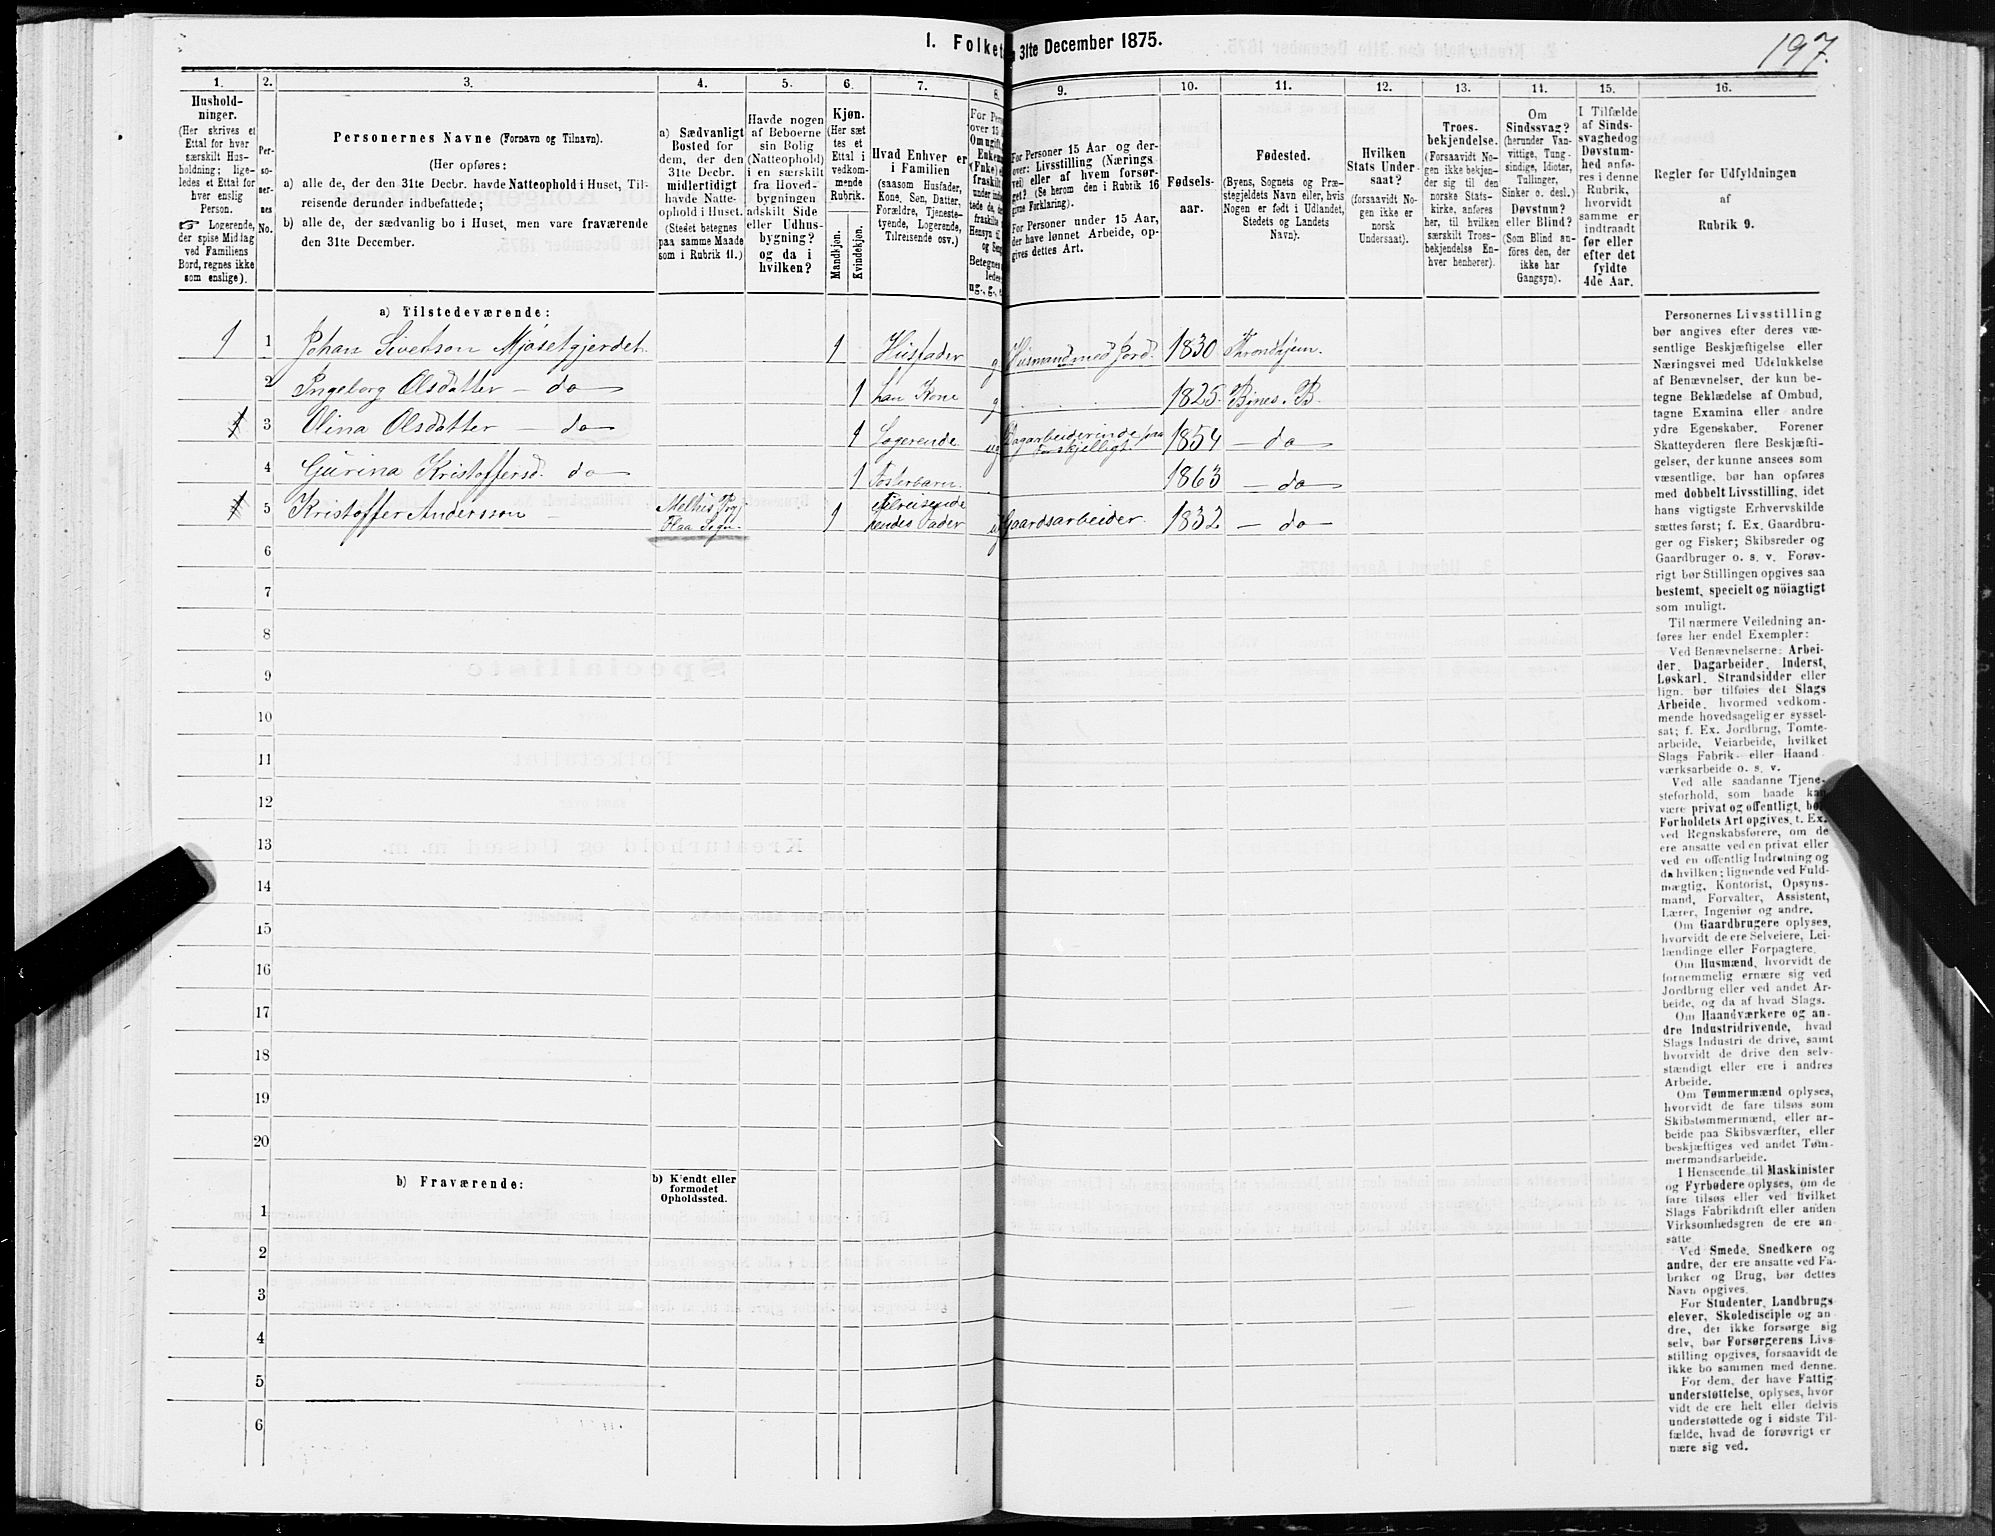 197.
I. Folket
31te December 1875.
1.
2.
3.
4.
5.
6.
7.
8.
9.
10.
11.
12.
13.
14.
15.
16.
Hushold-
ninger.
(Her skrives et
Ettal for hver
særskilt Hus-
holdning; lige-
ledes et Ettal for
hver enslig
Person.
☞ Logerende,
der spise Middag
ved Familiens
Bord, regnes ikke
som enslige).
Per-
so-
ner-
nes
No.
Personernes Navne (Fornavn og Tilnavn).
(Her opføres:
a) alle de, der den 31te Decbr. havde Natteophold i Huset, Til-
reisende derunder indbefattede;
b) alle de, der sædvanlig bo i Huset, men vare fraværende
den 31te December.
a) Sædvanligt
Bosted for
dem, der den
31te Decbr.
midlertidigt
havde Natte-
ophold i Huset.
(Stedet betegnes
paa samme Maade
som i Rubrik 11.)
Havde nogen
af Beboerne
sin Bolig
(Natteophold)
i en særskilt
fra Hoved-
bygningen
adskilt Side
eller Udhus-
bygning?
og da i
hvilken?
Kjøn.
(Her sæt
tes et
Ettal i
vedkom-
mende
Rubrik.
Mandkjøn.
Kvindekjøn.
Hvad Enhver er
i Familien
(saasom Husfader,
Kone, Søn, Datter,
Forældre, Tjeneste-
tyende, Logerende,
Tilreisende osv.)
For Personer 15 Aar og der-
over: Livsstilling (Nærings
vei) eller af hvem forsør-
get? (Se herom den i Rubrik 16
givne Forklaring).
For Personer under 15 Aar,
der have lønnet Arbeide, op-
gives dettes Art.
Fødsels-
aar.
Fødested.
(Byens, Sognets og Præ-
stegjeldets Navn eller, hvis
Nogen er født i Udlandet,
Stedets og Landets
Navn).
Hvilken
Stats Under-
saat?
(forsaavidt No-
gen ikke er
norsk
Undersaat).
Troes-
bekjendelse.
(Forsaavidt No-
gen ikke bekjen-
der sig til den
norske Stats-
kirke, anføres
her, til hvilken
særskilt Troes-
bekjendelse En-
hver henhører).
Om
Sindssvag?
(herunder Van-
vittige, Tung-
sindige, Idioter,
Tullinger,
Sinker o. desl.)
Døvstum?
eller Blind?
(Som Blind an-
føres den, der
ikke har
Gangsyn).
I Tilfælde
af Sinds-
svaghed og
Døvstum-
hed anfø-
res i denne
Rubrik,
hvorvidt
samme er
indtraadt
før eller
efter det
fyldte
4de Aar.
Regler for Udfyldningen
af
Rubrik 9.
a) Tilstedeværende:
1 1 Johan Sivertson Mjøsetgjerdet. 1 Husfader g Husmand med Jord. 1830 Throndhjem.
2 Ingeborg Olsdatter – do 1 han Kone g 1825. Bynes. B.
1 3 Olina Olsdatter – do 1 Logerende ug Dagarbeiderinde paa forskjelligt. 1854 – do
4 Gurina Kristoffersd. do 1 Fosterbarn. 1863 – do
1 5 Kristoffer Andersson – Melhus Prg Flaa Sogn. 1 tilreisende hendes Fader Gaardsarbeider. 1832 – do –
6
7
8
9
10
11
12
13
14
15
16
17
18
19
20
b) Fraværende:
b) Kjendt eller
formodet
Opholdssted.
1
2
3
4
5
6
Personernes Livsstilling
bør angives efter deres væ-
sentlige Beskjæftigelse eller
Næringsvei med Udelukkelse
af Benævnelser, der kun be-
tegne Beklædelse af Ombud,
tagne Examina eller andre
ydre Egenskaber. Forener
Skatteyderen flere Beskjæfti-
gelser, der kunne ansees som
væsentlige, bør han opføres
med dobbelt Livsstilling, idet
hans vigtigste Erhvervskilde
sættes først; f. Ex. Gaardbru-
ger og Fisker; Skibsreder og
Gaardbruger o. s. v. Forøv-
rigt bør Stillingen opgives saa
bestemt, specielt og nöiagtigt
som muligt.
Til nærmere Veiledning an-
føres her endel Exempler:
Ved Benævnelserne: Arbei-
der, Dagarbeider, Inderst,
Løskarl, Strandsidder eller
lign. bør tilføies det Slags
Arbeide, hvormed vedkom-
mende hovedsagelig er syssel-
sat; f. Ex. Jordbrug, Tomte-
arbeide, Veiarbeide, hvilket
Slags Fabrik- eller Haand
værksarbeide o. s. v.
Ved alle saadanne Tjene-
steforhold, som baade kan
være privat og offentligt, bør
Forholdets Art opgives, t. Ex.
ved Regnskabsførere, om de
ere ansatte ved en privat eller
ved en offentlig Indretning og
da hvilken; lignende ved Fuld-
mægtig, Kontorist, Opsyns-
mand, Forvalter, Assistent,
Lærer, Ingeniør og andre.
Om Gaardbrugere oplyses,
hvorvidt de ere Selveiere, Lei-
lændinge eller Forpagtere.
Om Husmænd, hvorvidt de
fornemmelig ernære sig ved
Jordbrug eller ved andet Ar-
beide, og da af hvad Slags.
Om Haandværkere og an-
dre Industridrivende, hvad
Slags Industri de drive, samt
hvorvidt de drive den selv-
stændigt eller ere i andres
Arbeide.
Om Tømmermænd oplyses,
hvorvidt de fare tilsøs som
Skibstømmermænd, eller ar-
beide paa Skibsværfter, eller
beskjæftiges ved andet Tøm-
mermandsarbeide.
I Henseende til Maskinister
og Fyrbødere oplyses, om de
fare tilsøs eller ved hvilket
Slags Fabrikdrift eller anden
Virksomhedsgren de ere an-
satte.
Ved Smede, Snedkere og
andre, der ere ansatte ved Fa-
briker og Brug, bør dettes
Navn opgives.
For Studenter, Landbrugs
elever, Skoledisciple og an-
dre, der ikke forsørge sig
selv, bør Forsørgerens Livs-
stilling opgives, forsaavidt de
ikke bo sammen med denne.
For dem, der have Fattig-
understøttelse, oplyses, hvor
vidt de ere helt eller delvis
understøttede og i sidste Til-
fælde, hvad de forøvrigt er
nære sig ved.